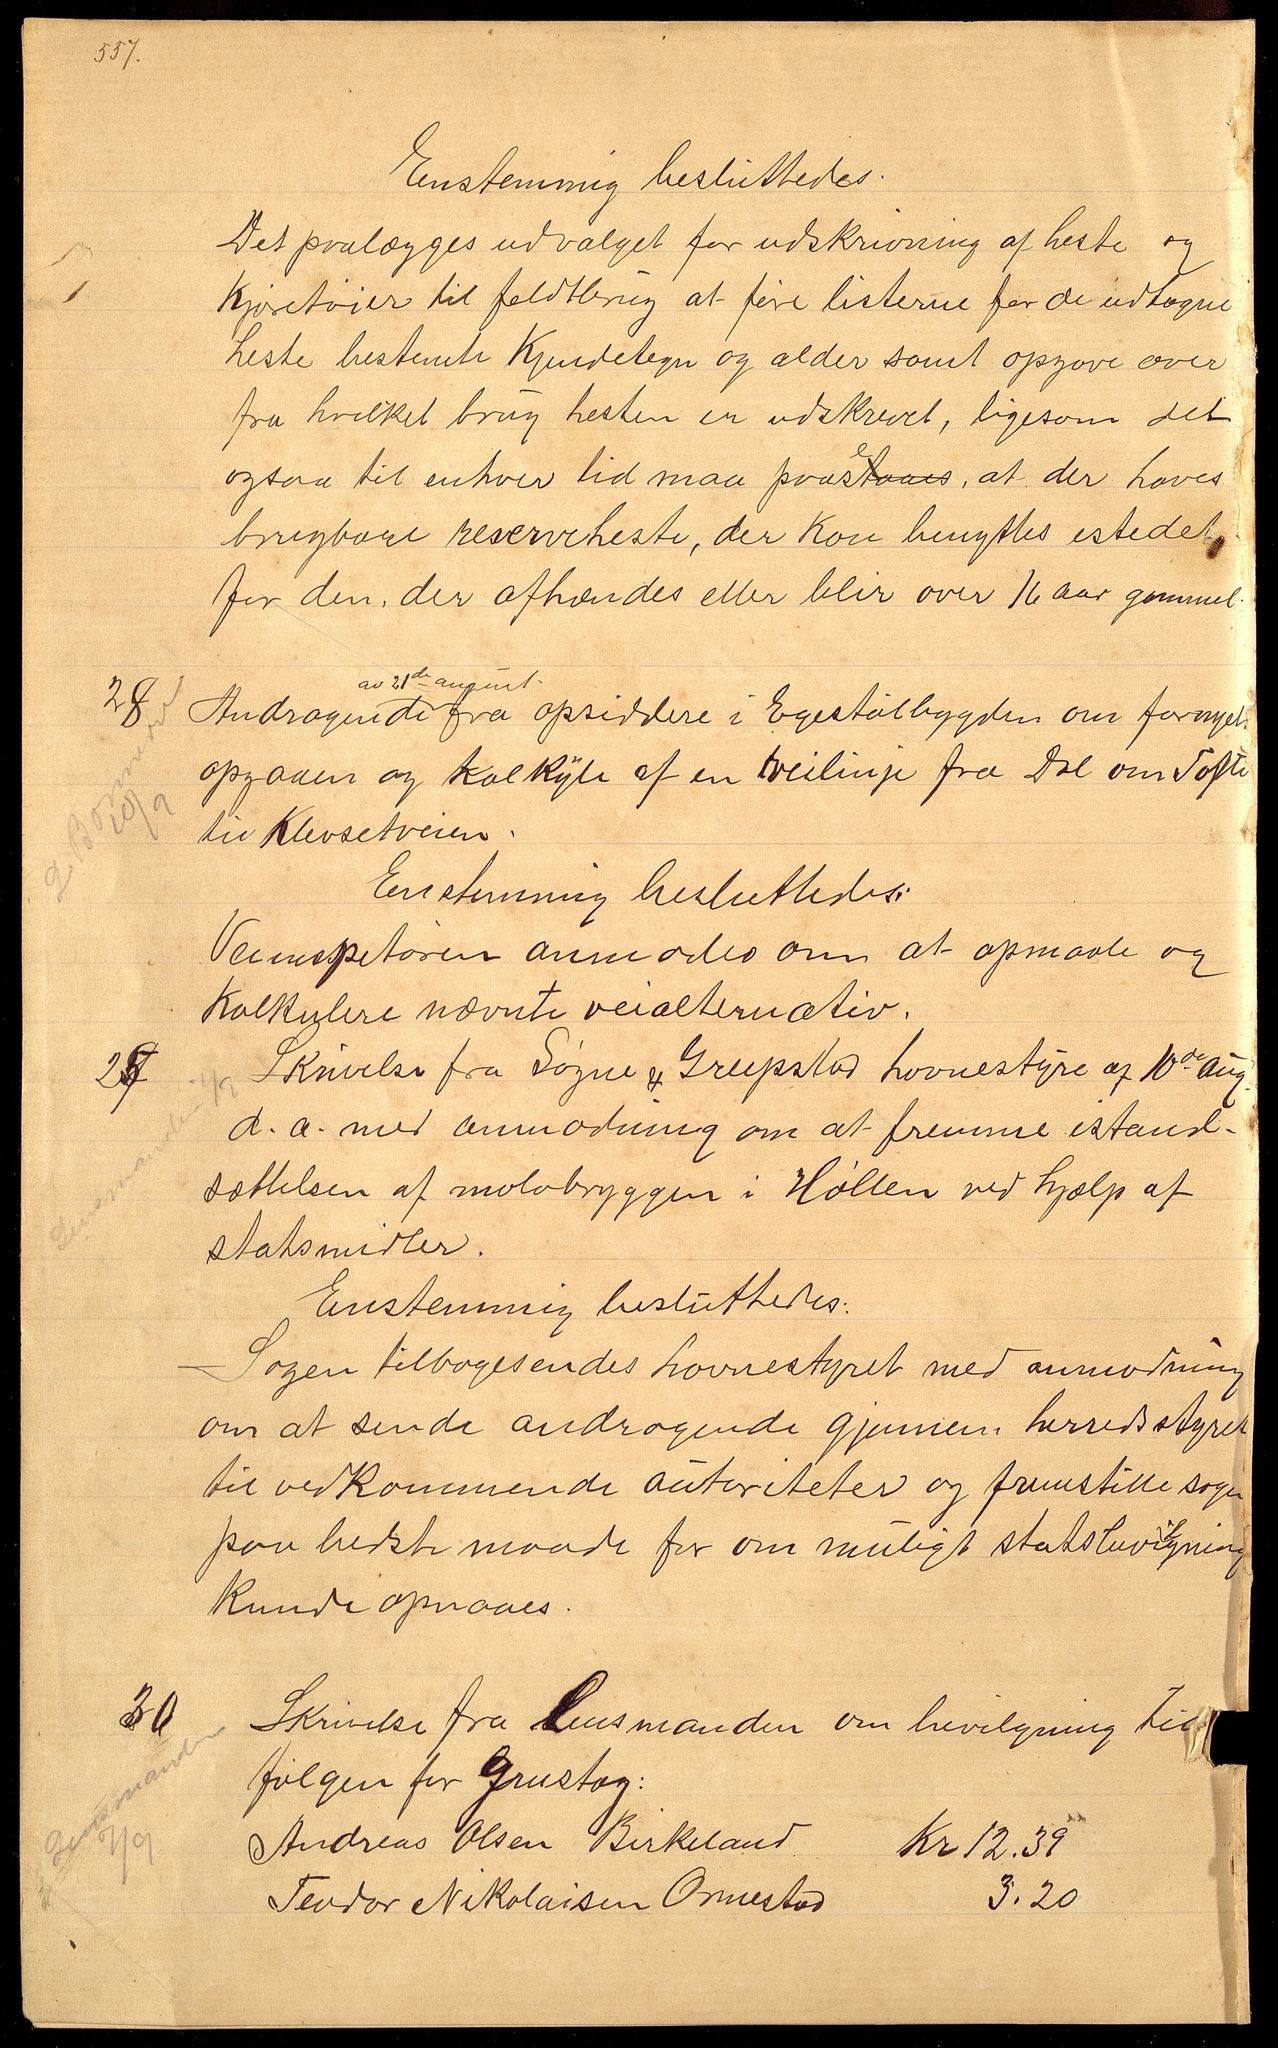 557.
Enstemmig besluttedes.
Det paalægges udvalget for udskrivning af heste og
kjøretøier til feldtbrug at føre listerne for de udtagne
heste bestemte kjendetegn og alder samt opgave over
fra hvilket brug hesten er udskrevet, ligesom det
ogsaa til enhver tid maa paasees, at der haves
brugbare reserveheste, der kan benyttes istedet
for den, der afhændes eller blir over 16 aar gammel.
av 21de august
28 Andragende fra opsiddere i Egestølbygden om fornyet
opgaaen og kalkyle af en veilinje fra Dal om Tofte
til Klevsetveien.
Enstemmig besluttedes:
Veiinspetøren anmodes om at opmaale og
kalkulere nævnte veialternativ.
29 Skrivelse fra Søgne & Greipstad havnestyre af 10de aug.
d. a. med anmodning om at fremme istand-
sættelsen af molobryggen i Høllen ved hjælp af
statsmidler.
Enstemmig besluttedes:
Sagen tilbagesendes havnestyret med anmodning
om at sende andragende gjennem herredsstyret
til vedkommende autoriteter og fremstille sagen
paa bedste maade for om muligt statsbevilgning
kunde opnaaes.
30 Skrivelse fra Lensmanden om bevilgning til
følgen for Grustag:
Andreas Olsen Birkeland Kr 12.39
Teodor Nikolaisen Ormestad 3.20
10/9
Lensmanden
Lensmanden
7/9